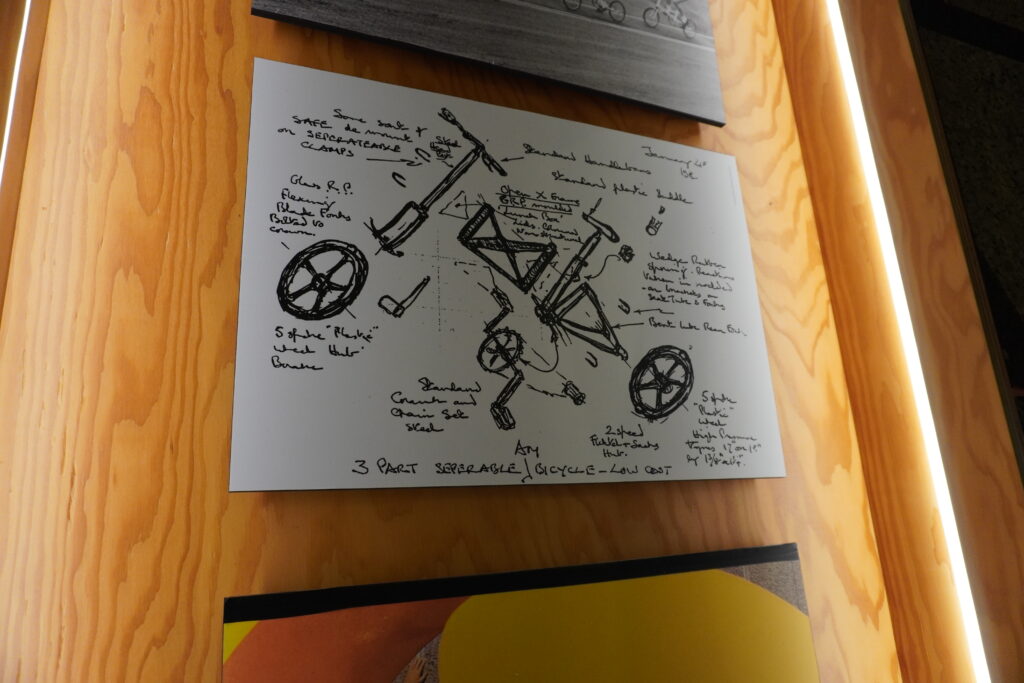 Some sort of
SAFE de mount
on SEPERATEABLE
CLAMPS
Steel
January 4th
Standard Handlebars
Standard plastic saddle
Glass R.P.
Flexing
Blade Forks
Bolted to
crown.
Open X Frame
G.R.P. moulded
'Lunch Box'
Non structural
Wedge Rubber
Spring. Reaction
moulded
on brackets on
Seat Tube & Forks
Rear Forks
5 spoke "Plastic"
wheel Hub
Brake
Standard
Cranks and
Chain Set
Steel
2 speed
Fichtel & Sachs
Hub.
5 spoke
"Plastic"
wheel
High Pressure
Tyres 17" or 18"
by
AM
3 PART SEPERABLE BICYCLE - LOW COST